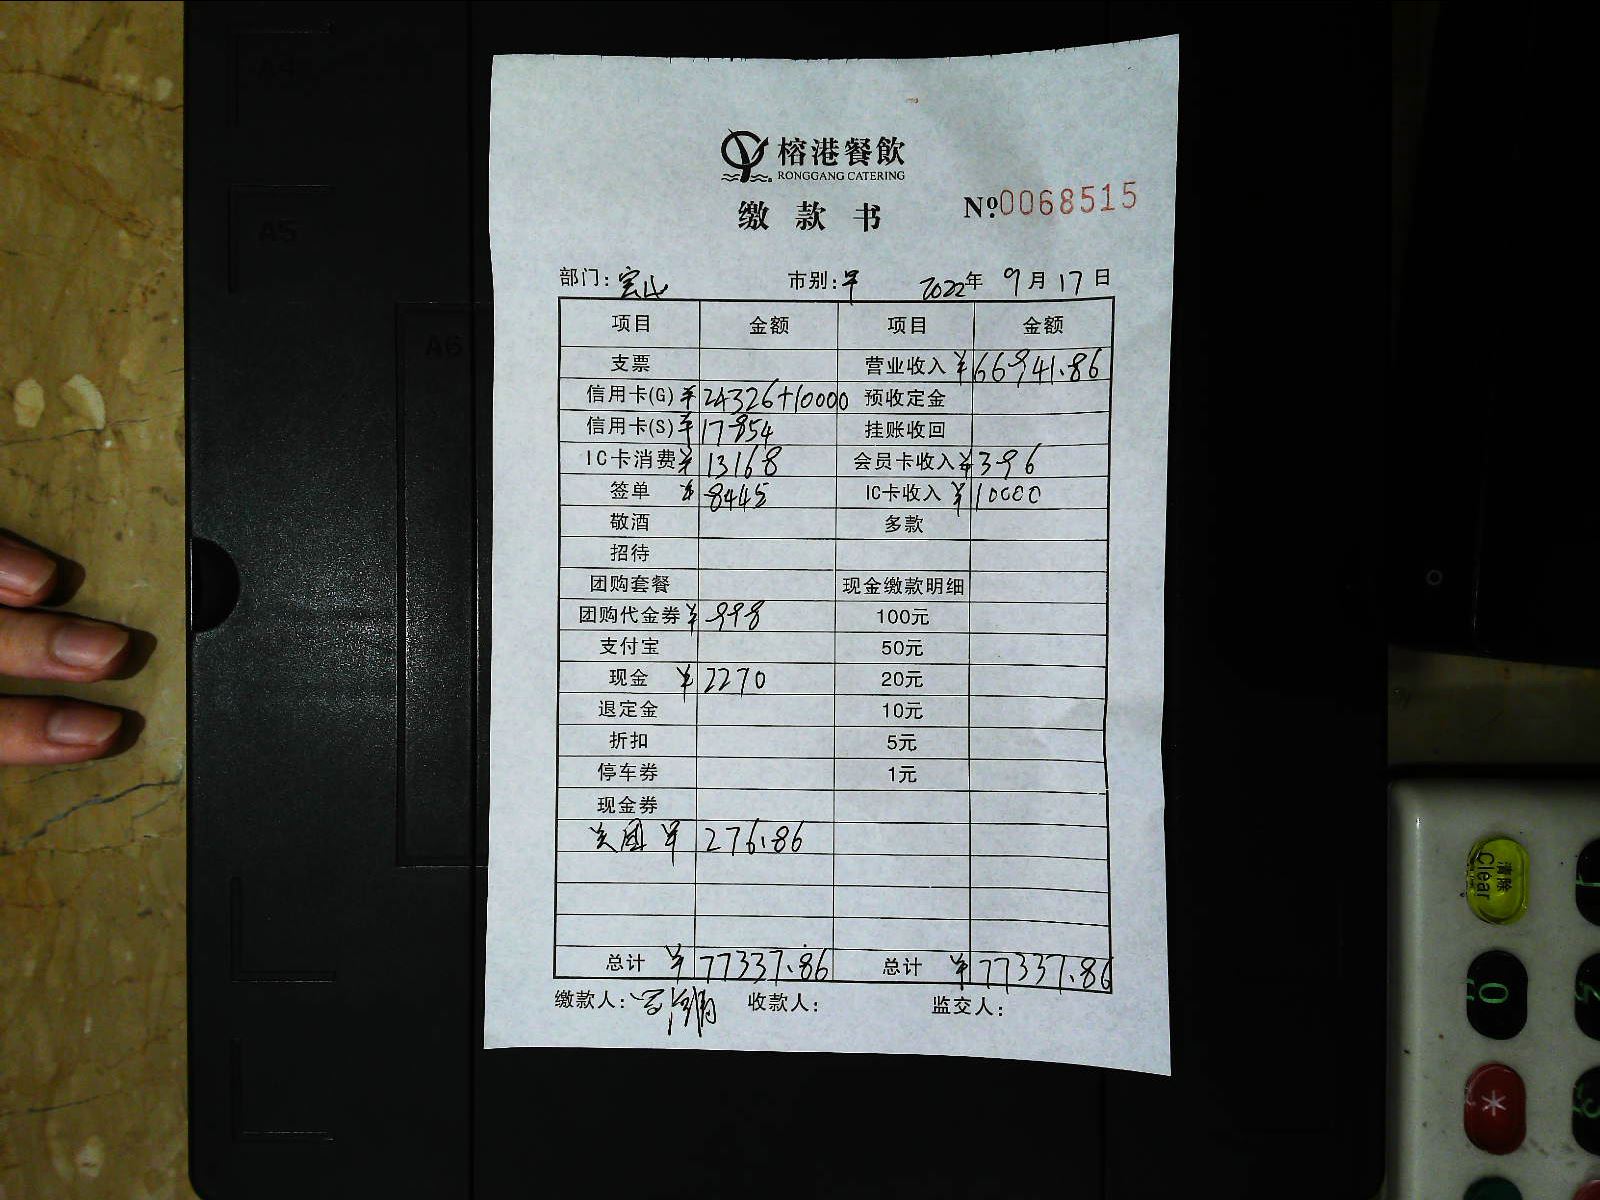 榕港餐飲
RONGGANG CATERING
缴款书 №0068515
部门: 宝山 市别: 早 2022年 9月17日
项目 金额 项目 金额
支票 营业收入 ¥66941.86
信用卡(G) ¥24326+10000 预收定金
信用卡(S) ¥17854 挂账收回
IC卡消费 ¥13168 会员卡收入 ¥396
签单 ¥8445 IC卡收入 ¥10000
敬酒 多款
招待
团购套餐 现金缴款明细
团购代金券 ¥998 100元
支付宝 50元
现金 ¥2270 20元
退定金 10元
折扣 5元
停车券 1元
现金券
美团 ¥276.86
总计 ¥77337.86 总计 ¥77337.86
缴款人: 收款人: 监交人:
A4
A5
A6
清除
Clear
0
*